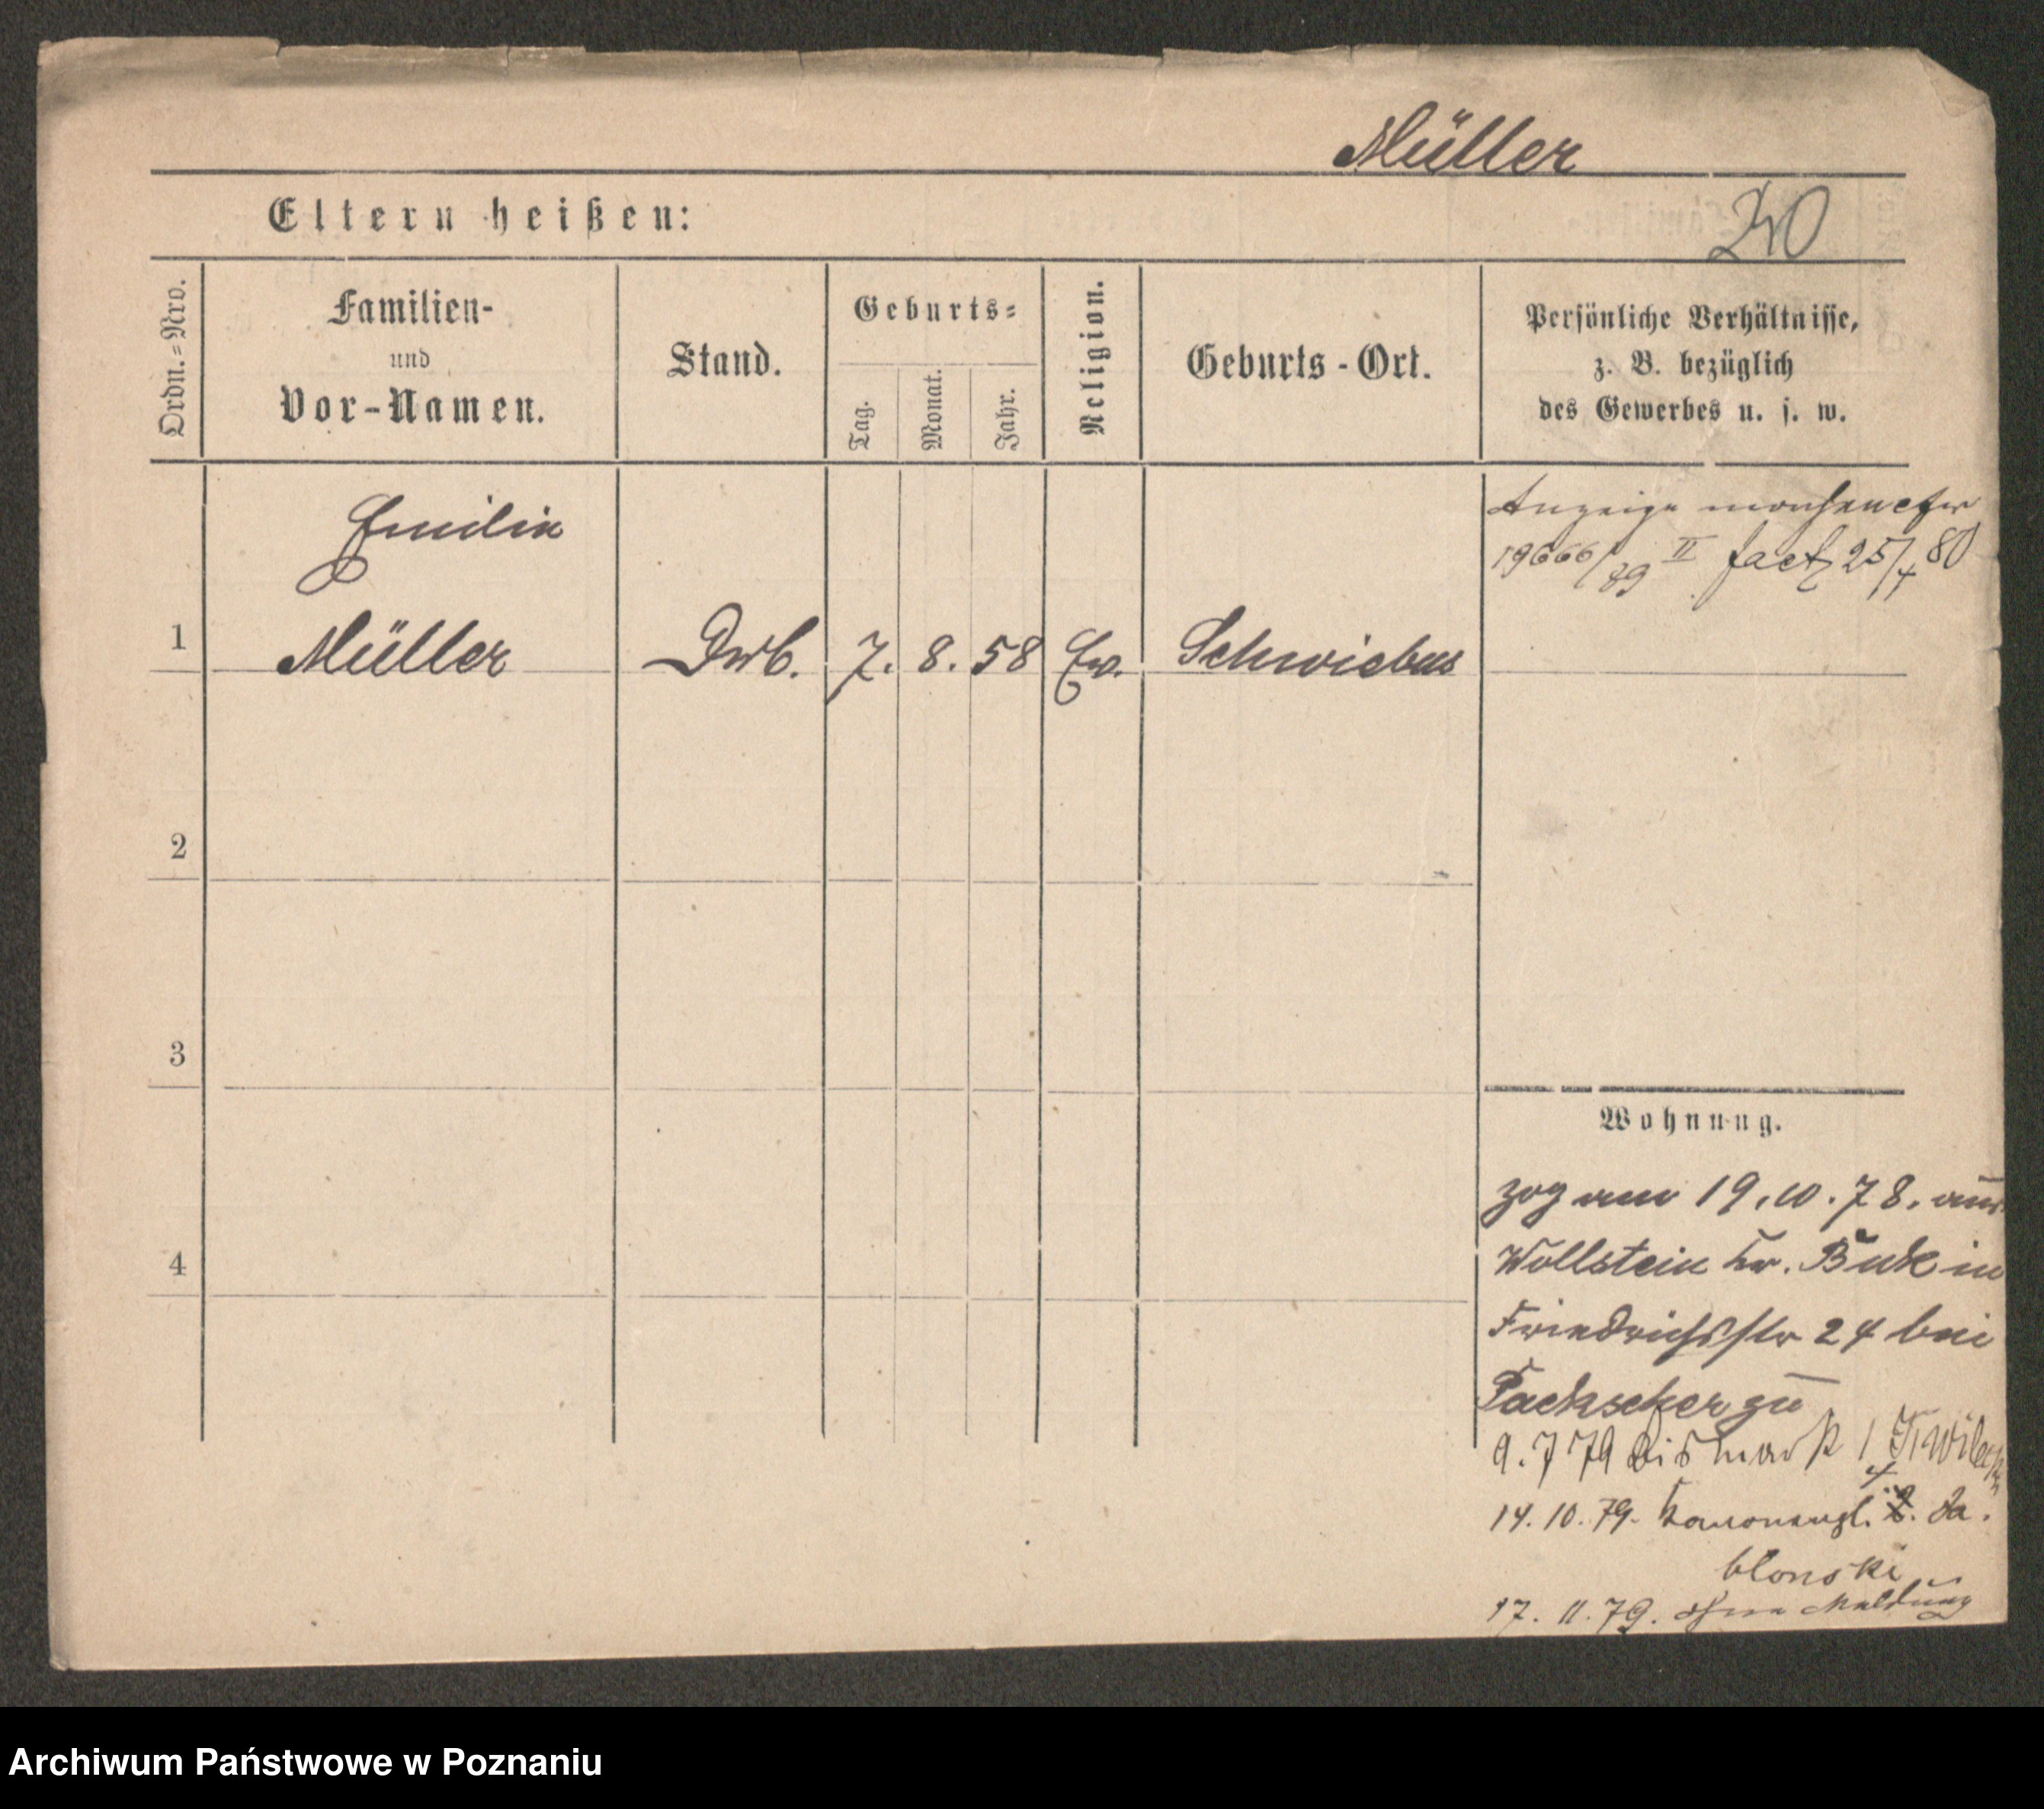 Müller
Eltern heißen:
Ordn.=Nro.
Familien-
und
Vor-Namen.
Stand.
Geburts=
Tag.
Monat.
Jahr.
Religion.
Geburts-Ort.
Persönliche Verhältnisse,
z. B. bezüglich
des Gewerbes u. s. w.
Anzeige
19666/79 II 25/4 80
Emilie
1 Müller 7. 8. 58 Ev. Schwiebus
2
3
Wohnung.
zog am 19.10.78. aus
Wollstein Kr. Buk in
4
Friedrichsstr 24 bei
Packscher zu
9.7 79 Bismark 1
14.10.79. Kanonenpl. 4 Ja.
blonski
17. 11. 79. ohne Meldung
Archiwum Państwowe w Poznaniu